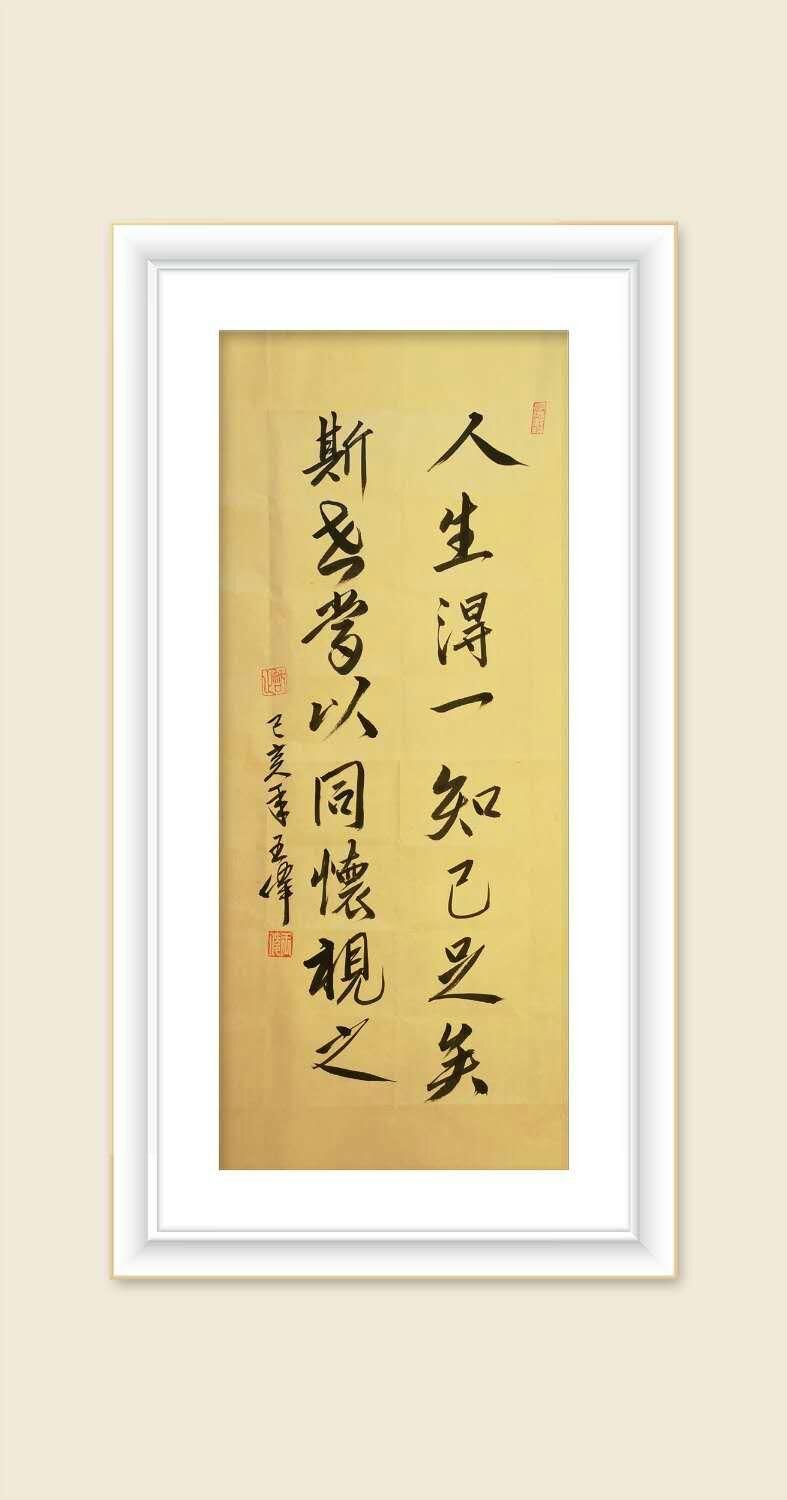 人生得一知己足矣
斯世當以同懷視之
己亥年王偉